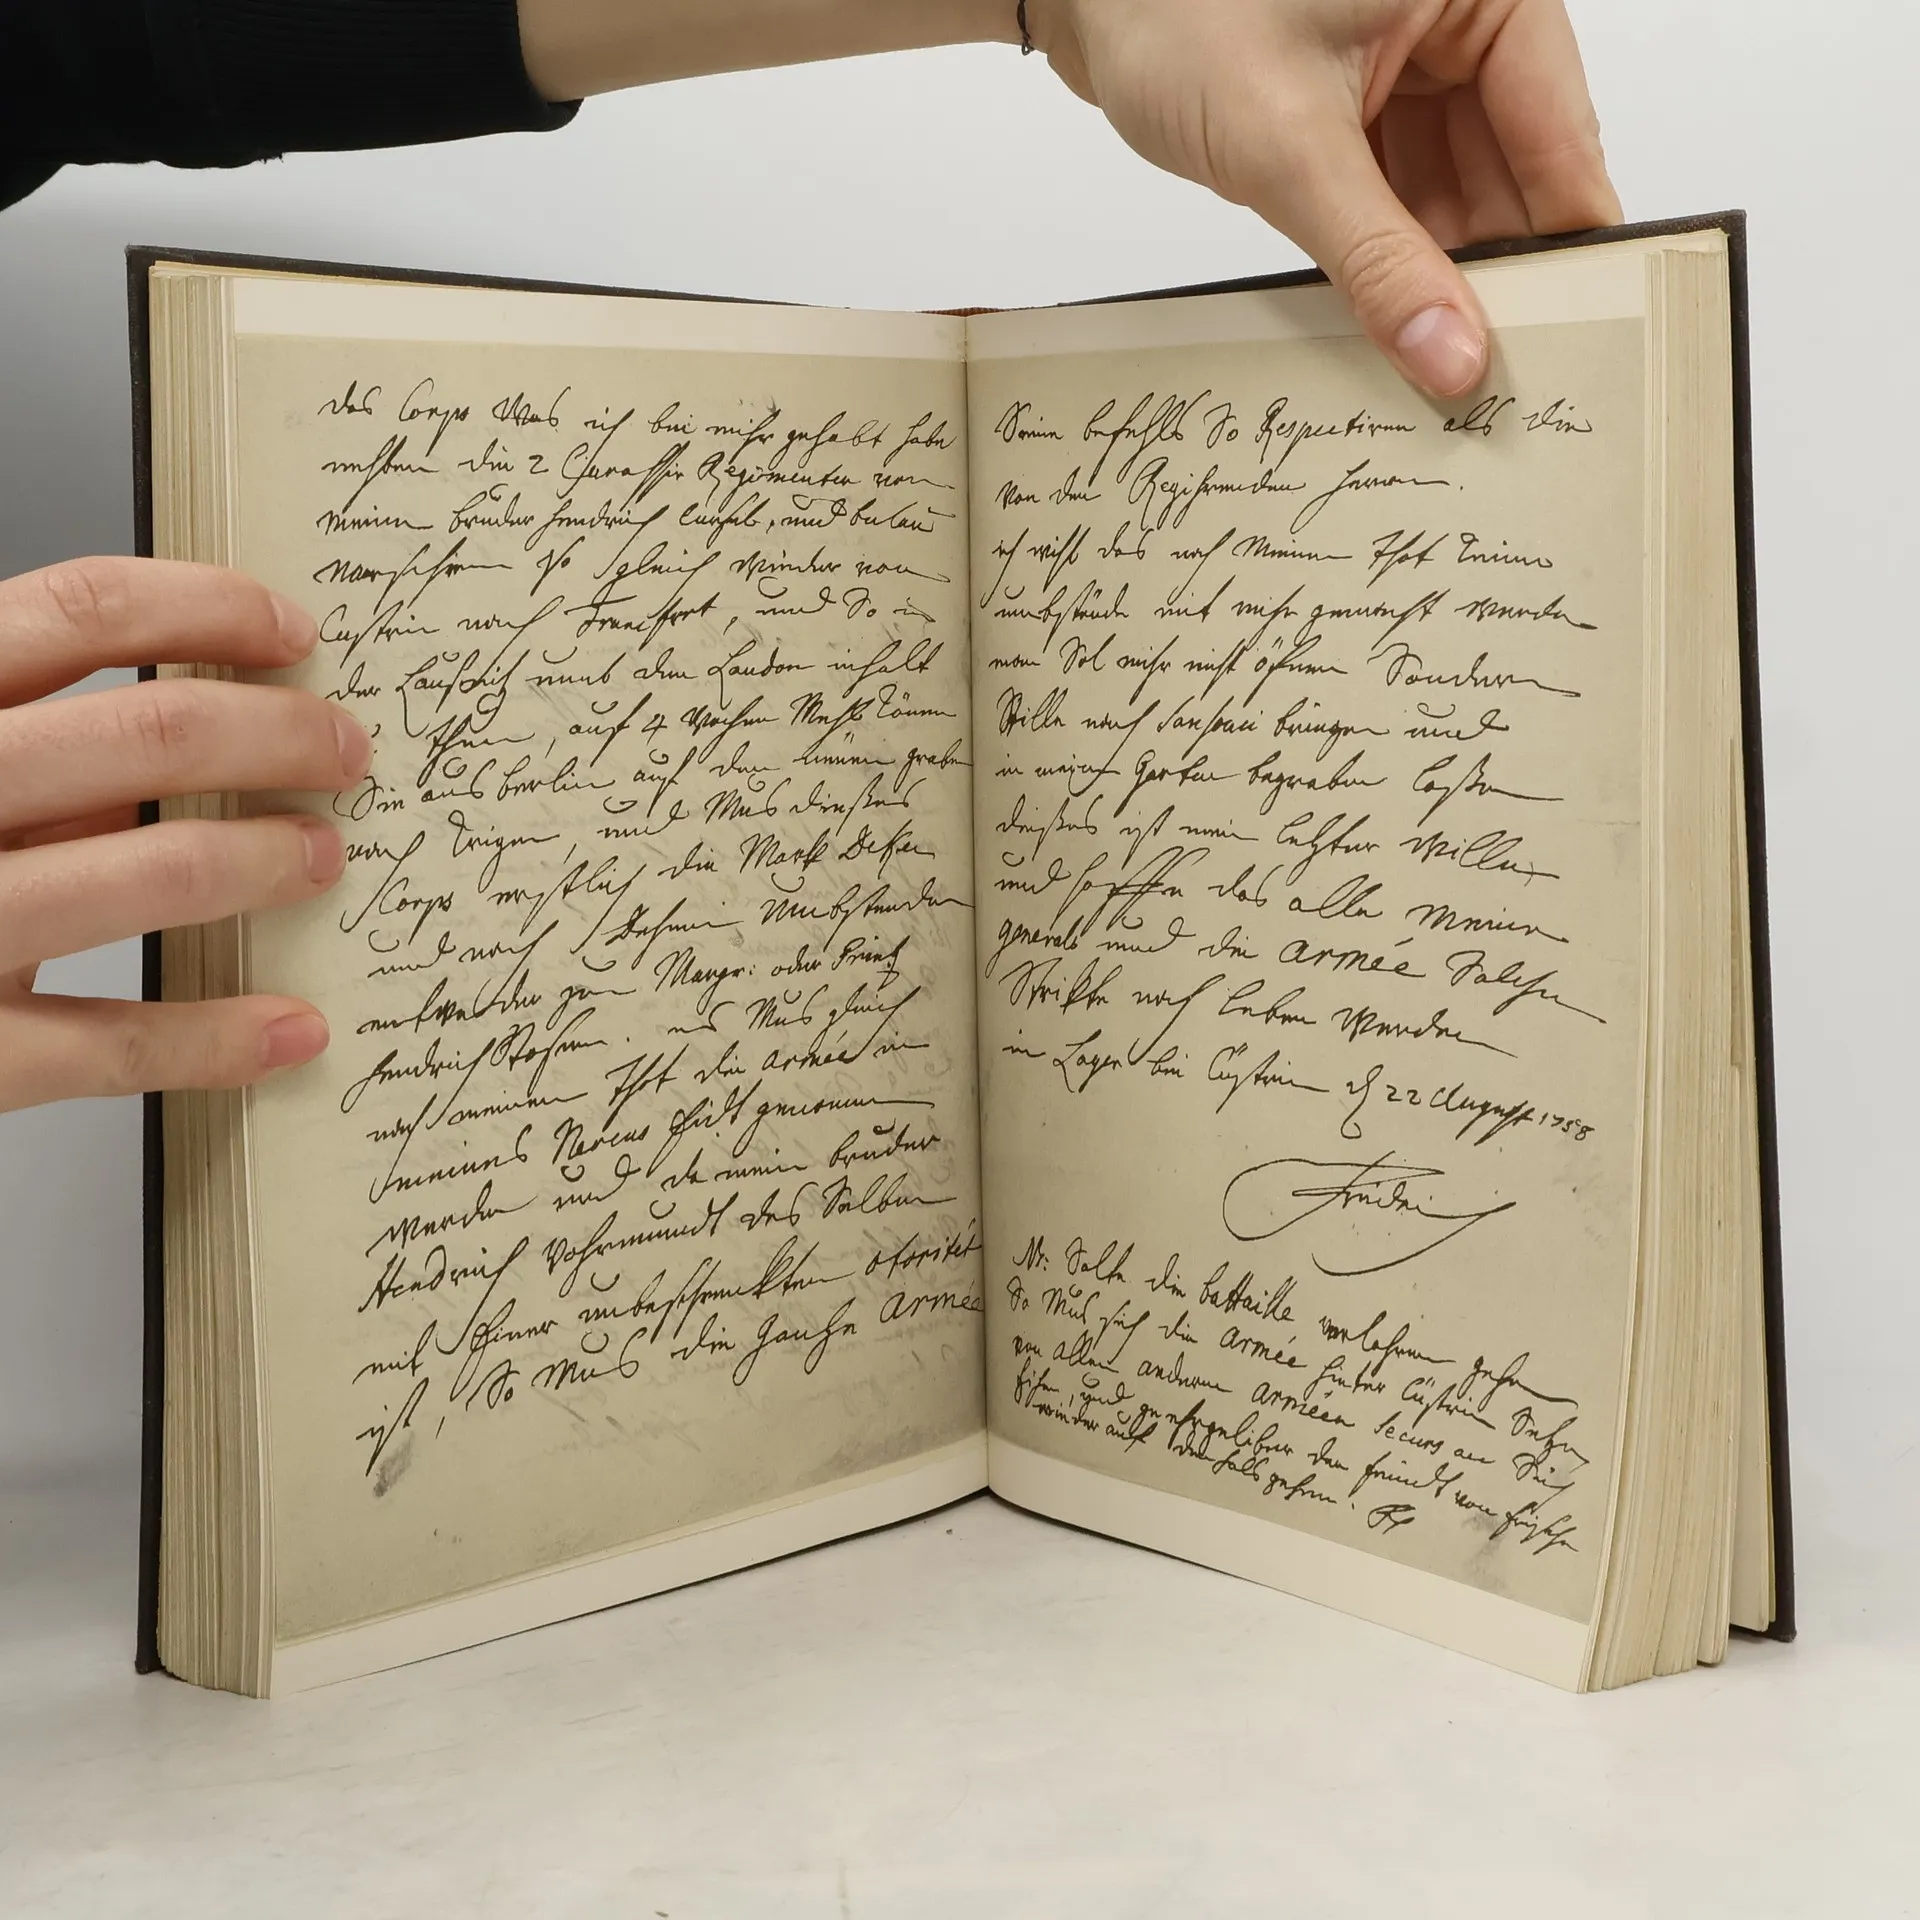 das Corps Was ich bei mihr gehabt habe
nehben die 2 Curassir Regimenter von
meinen bruder Hendrich und
marschiren so gleich wieder von
Custrin nach Francfort, und So in
der Lausnitz umb den Laudon inhalt
thun, auf 4 Wochen Mehl könen
Sie aus berlin auf den neüen graben
nach krigen, und Mus dieses
Corps erstlich die Mark Deken
und nach Dehme Umbstenden
entweder zum Margr: oder Printz
Hendrich Stoßen. es Mus gleich
nach meinen Thot die Armée in
meines Neveus Eidt genomen
werden und da mein bruder
Hendrich Vohrmundt des Selben
mit Einer unbeschrenkten otoritét
ist, So Mus die gantze Armée
Seine befehls So Respectiren als die
von den Regihrenden Herren.
ich wihl das nach Meinen Thot keine
umbstände mit mihr gemacht werden
man Sol mihr nicht öfnen Sondern
Stille nach Sansouci bringen und
in meinen Garten begraben laßen
dießes ist mein letzter Wille,
und hoffe das alle meine
generals und die Armée Solchen
Strikte nach leben werden
in Lager bei Cüstrin d 22 August 1758
Friderich
N: Solte die battaille verlohren gehen
So Mus sich die Armée hinter Cüstrin Setzen
von allen anderen Arméen Securs an Sich
zihen, und je ehr je liber den feindt von frischen
wieder auf den hals gehen. Fr